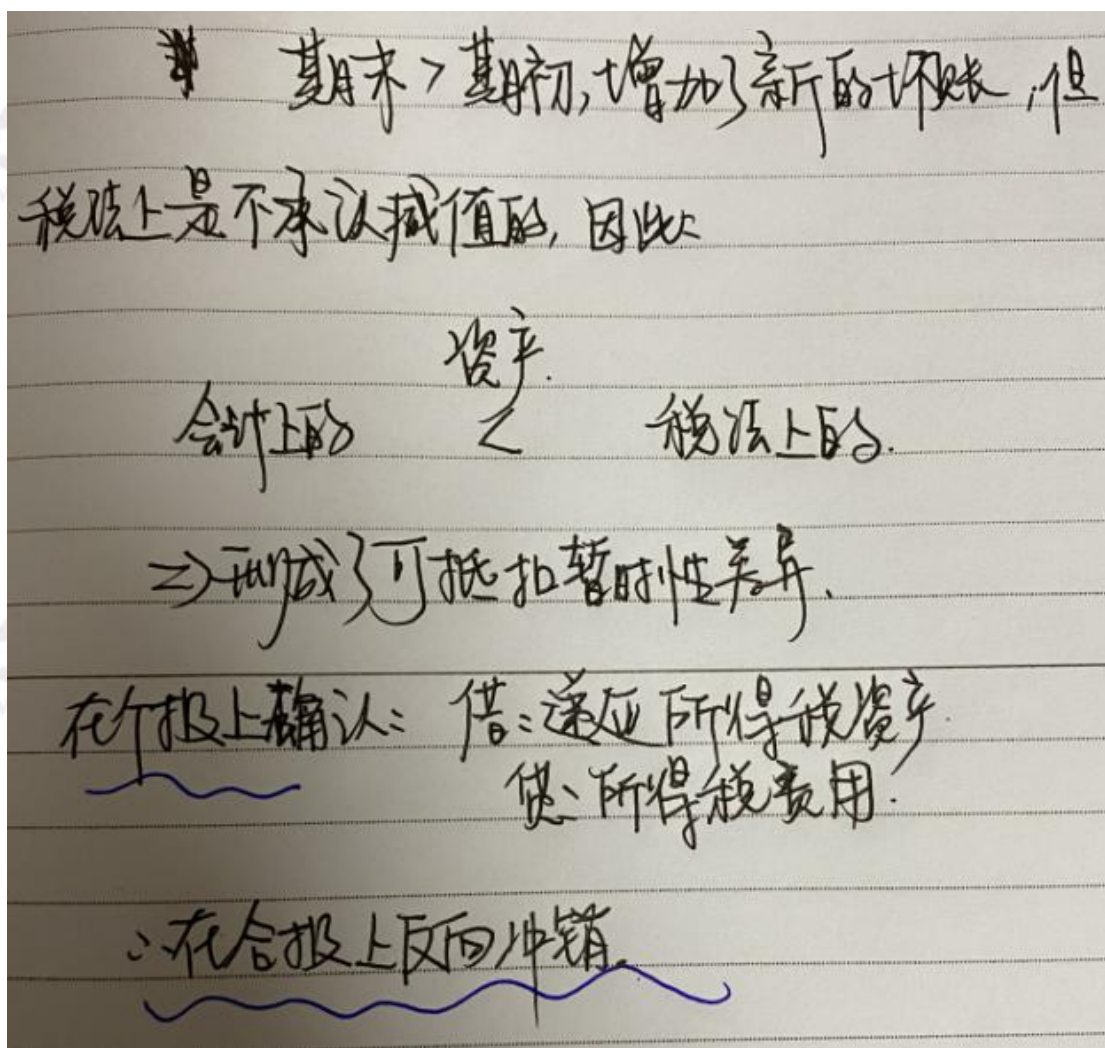 期末>期初,增加了新的坏账,但
税法上是不承认减值的,因此:
资产.
会计上的 < 税法上的.
=>形成了可抵扣暂时性差异.
在个报上确认: 借:递延所得税资产.
贷:所得税费用.
∴在合报上反向冲销.